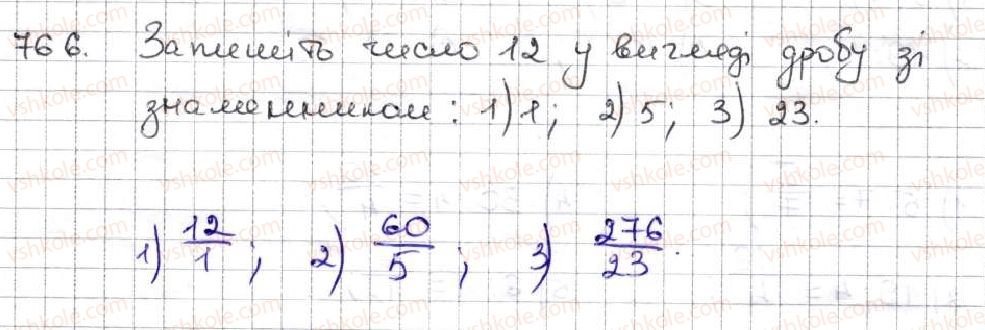 766. Запишіть число 12 у вигляді дробу зі
знаменником: 1) 1; 2) 5; 3) 23.
1) 12/1; 2) 60/5; 3) 276/23.